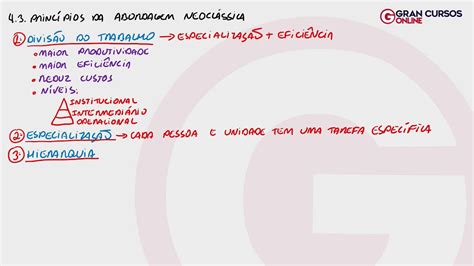 4.3. PRINCÍPIOS DA ABORDAGEM NEOCLÁSSICA
GRAN CURSOS
ONLINE
1. DIVISÃO DO TRABALHO → ESPECIALIZAÇÃO + EFICIÊNCIA
• MAIOR PRODUTIVIDADE
• MAIOR EFICIÊNCIA
• REDUZ CUSTOS
• NÍVEIS:
INSTITUCIONAL
INTERMEDIÁRIO
OPERACIONAL
2. ESPECIALIZAÇÃO → CADA PESSOA E UNIDADE TEM UMA TAREFA ESPECÍFICA
3. HIERARQUIA